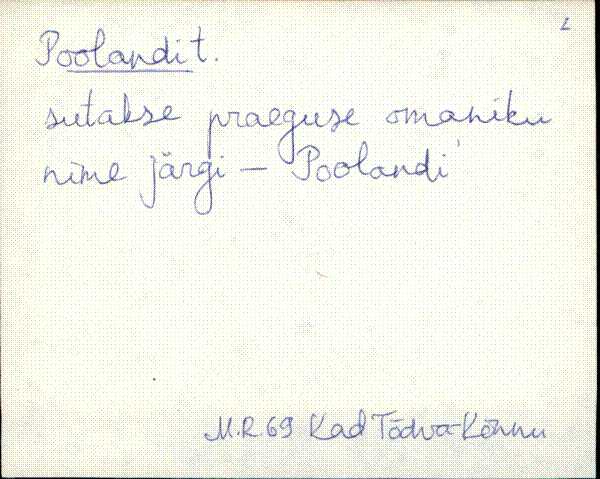 2
Poolandi t.
sutakse praeguse omaniku
nime järgi — Poolandi'
M.R.69 Kad Tõdva-Kõnnu